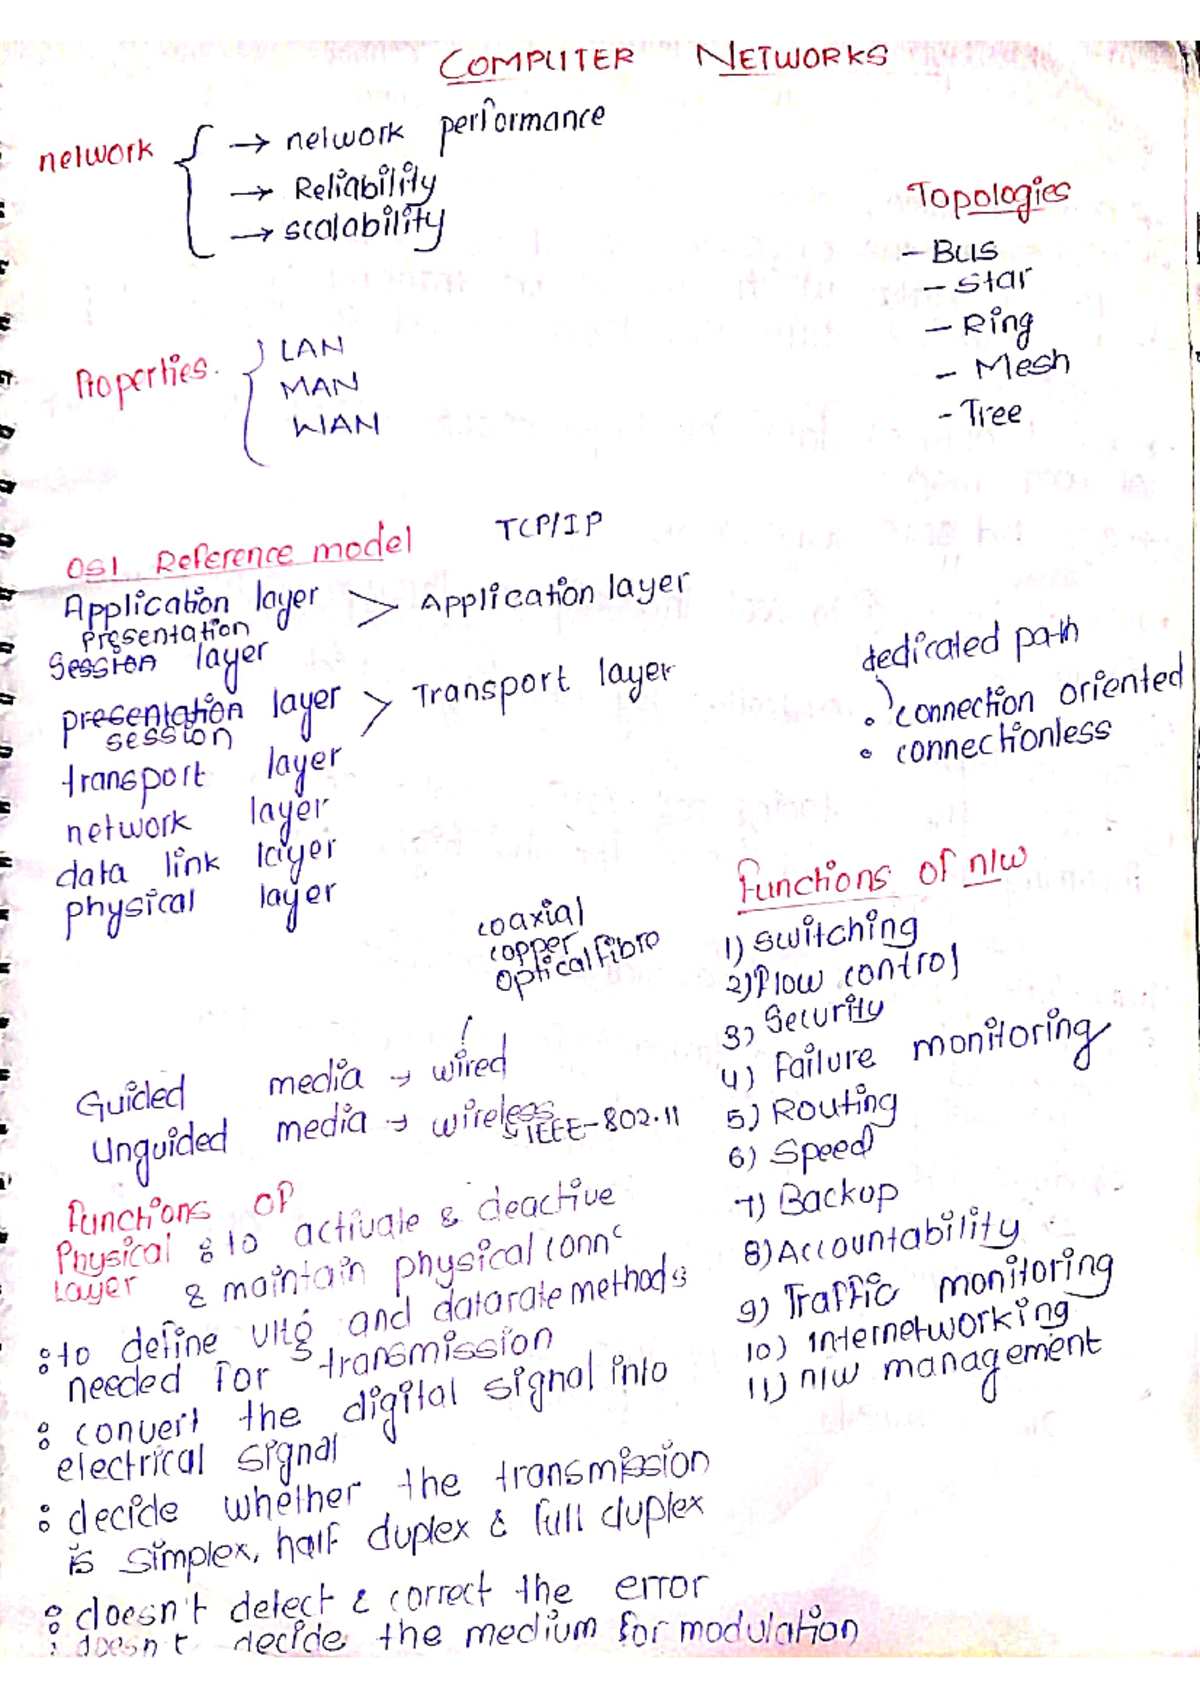 COMPUTER NETWORKS
network
→ network performance
→ Reliability
→ scalability
Topologies
- Bus
- Star
- Ring
- Mesh
- Tree
Properties.
LAN
MAN
WAN
OSI Reference model
TCP/IP
Application layer > Application layer
presentation
Session layer
presentation layer > Transport layer
session
transport layer
network layer
data link layer
physical layer
dedicated path
• connection oriented
• connectionless
coaxial
copper
optical fibre
Guided media → wired
Unguided media → wireless
IEEE-802.11
Functions of n/w
1) switching
2) Flow control
3) Security
4) Failure monitoring
5) Routing
6) Speed
7) Backup
8) Accountability
9) Traffic monitoring
10) internetworking
11) n/w management
Functions of
Physical : to activate & deactive
Layer & maintain physical connc
: to define vltg and datarate methods
needed for transmission
: convert the digital signal into
electrical signal
: decide whether the transmission
is simplex, half duplex & full duplex
: doesn't detect & correct the error
: doesn't decide the medium for modulation